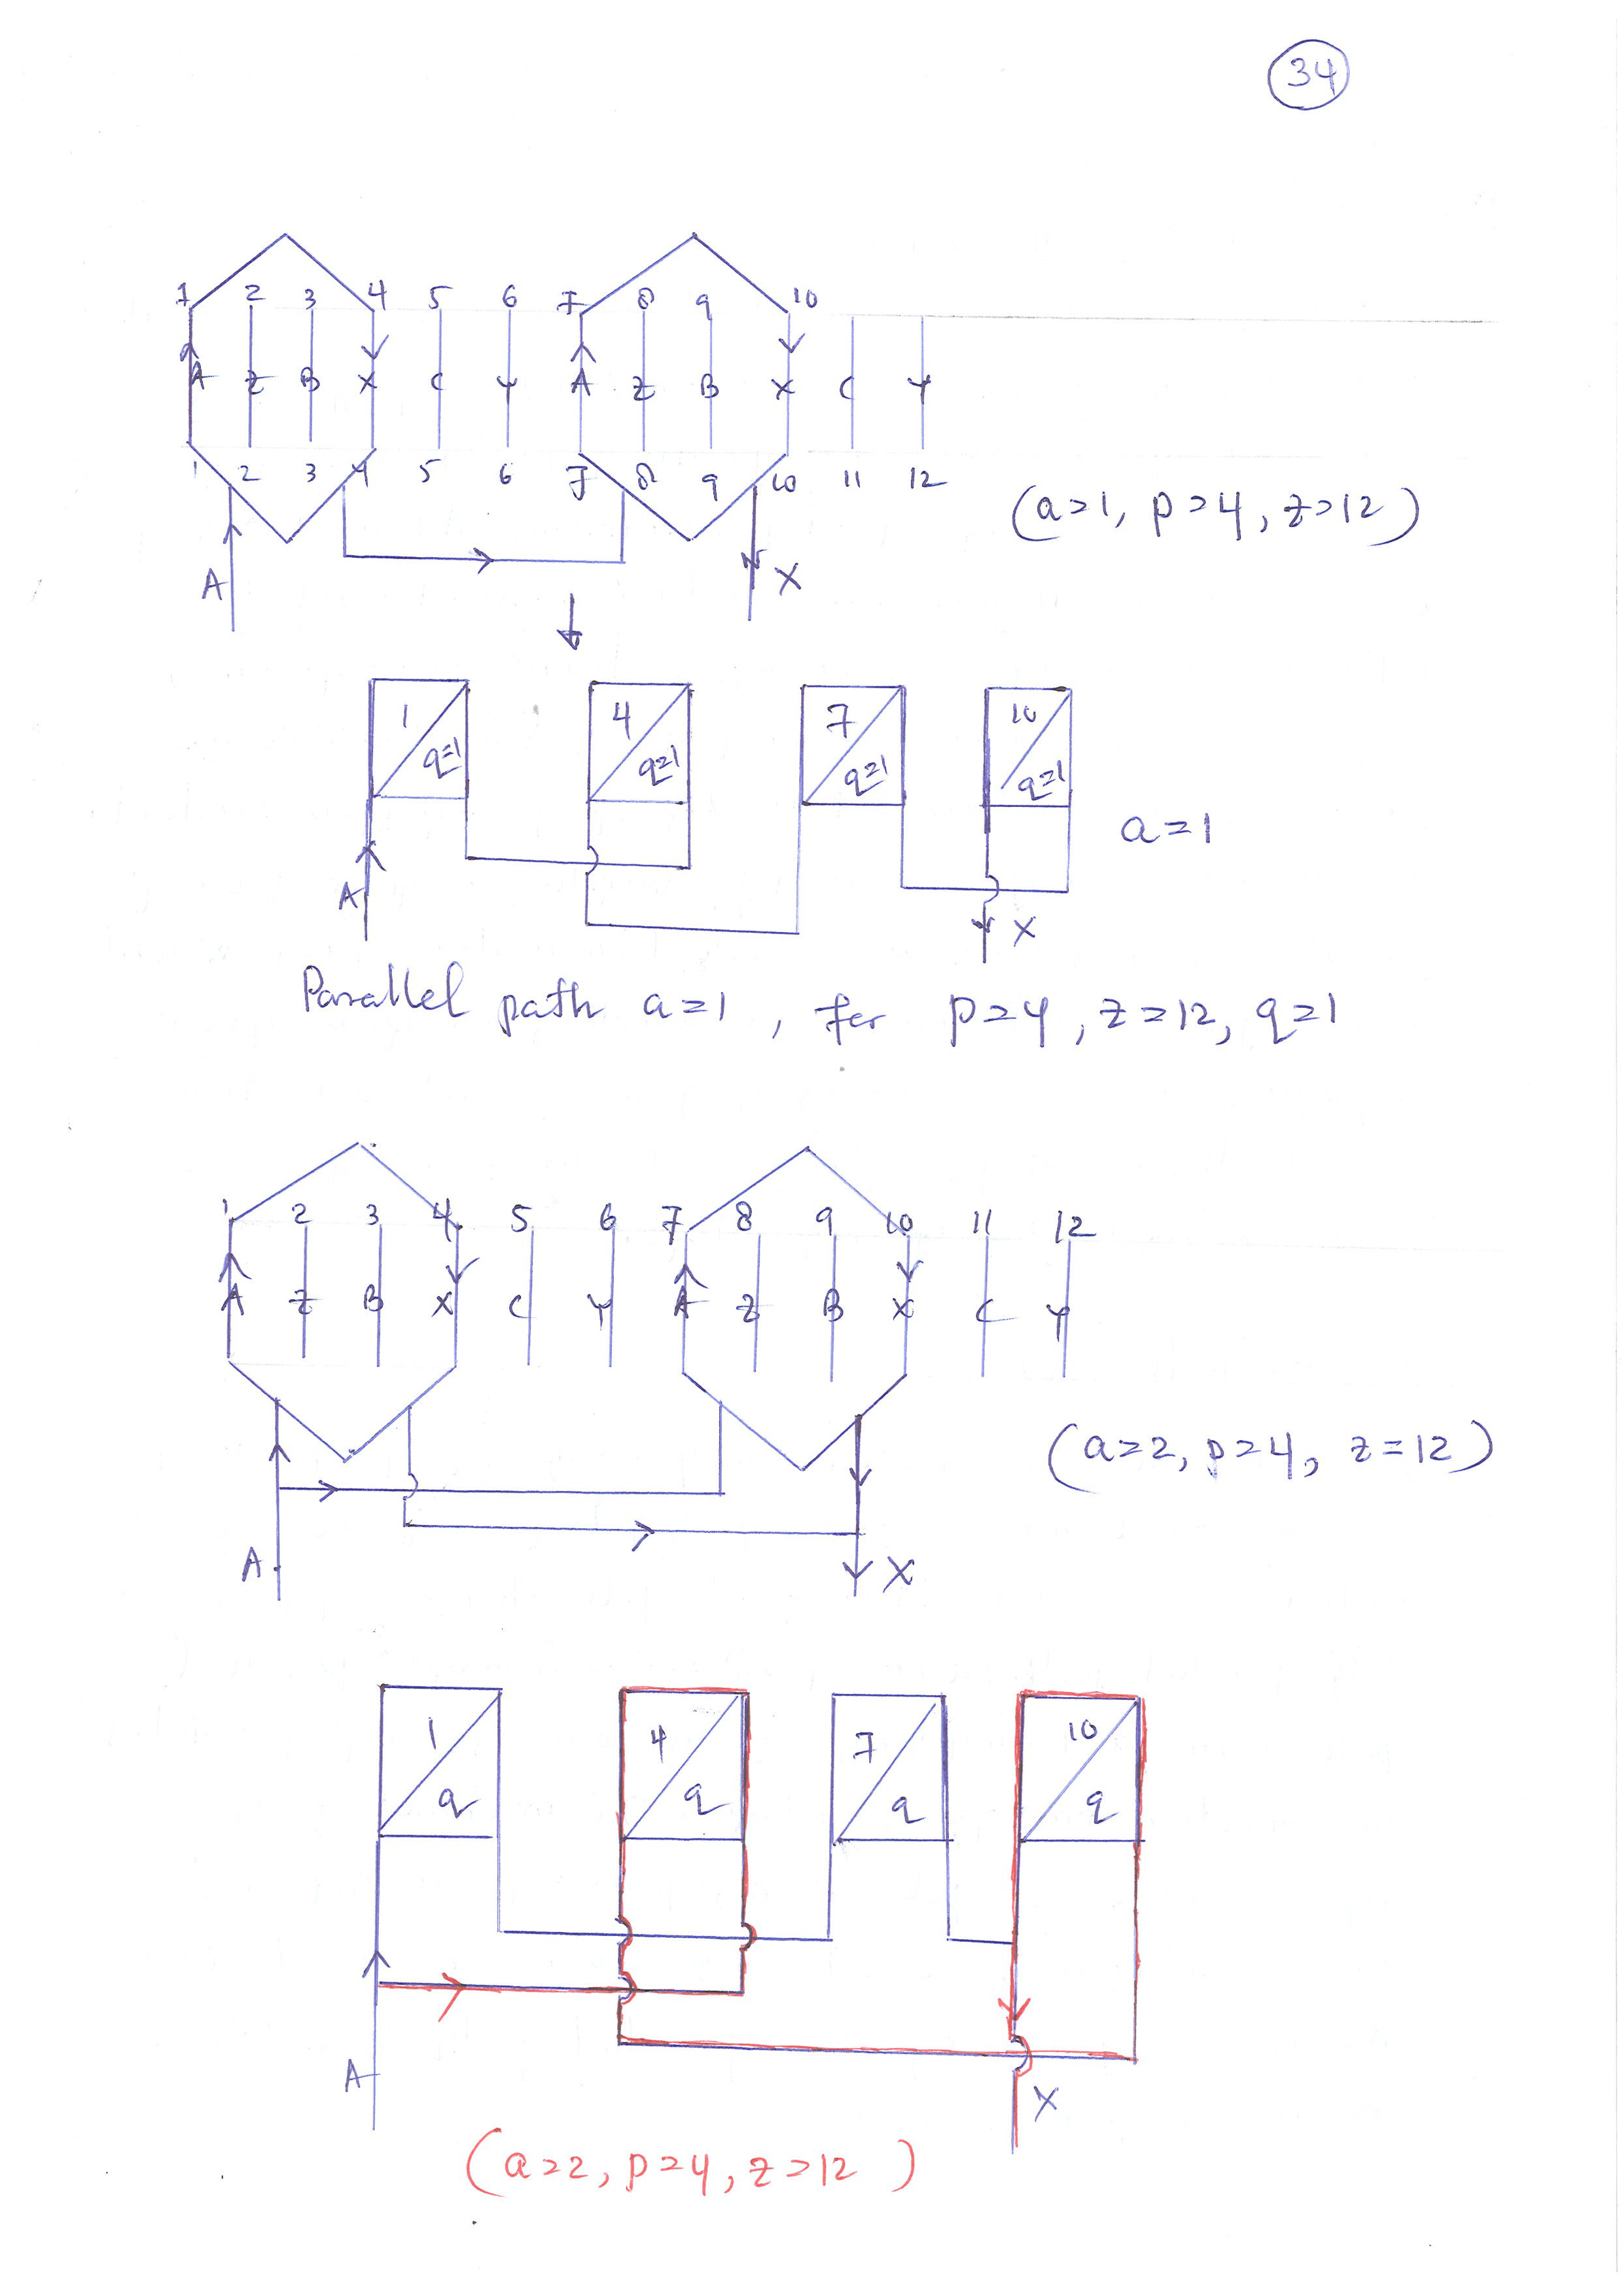 34
1 2 3 4 5 6 7 8 9 10
A Z B X C Y A Z B X C Y
1 2 3 4 5 6 7 8 9 10 11 12
(a=1, p=4, z=12)
A X
1 4 7 10
q=1 q=1 q=1 q=1
a=1
A X
Parallel path a=1, for p=4, z=12, q=1
1 2 3 4 5 6 7 8 9 10 11 12
A Z B X C Y A Z B X C Y
(a=2, p=4, z=12)
A X
1 4 7 10
q q q q
A X
(a=2, p=4, z=12)